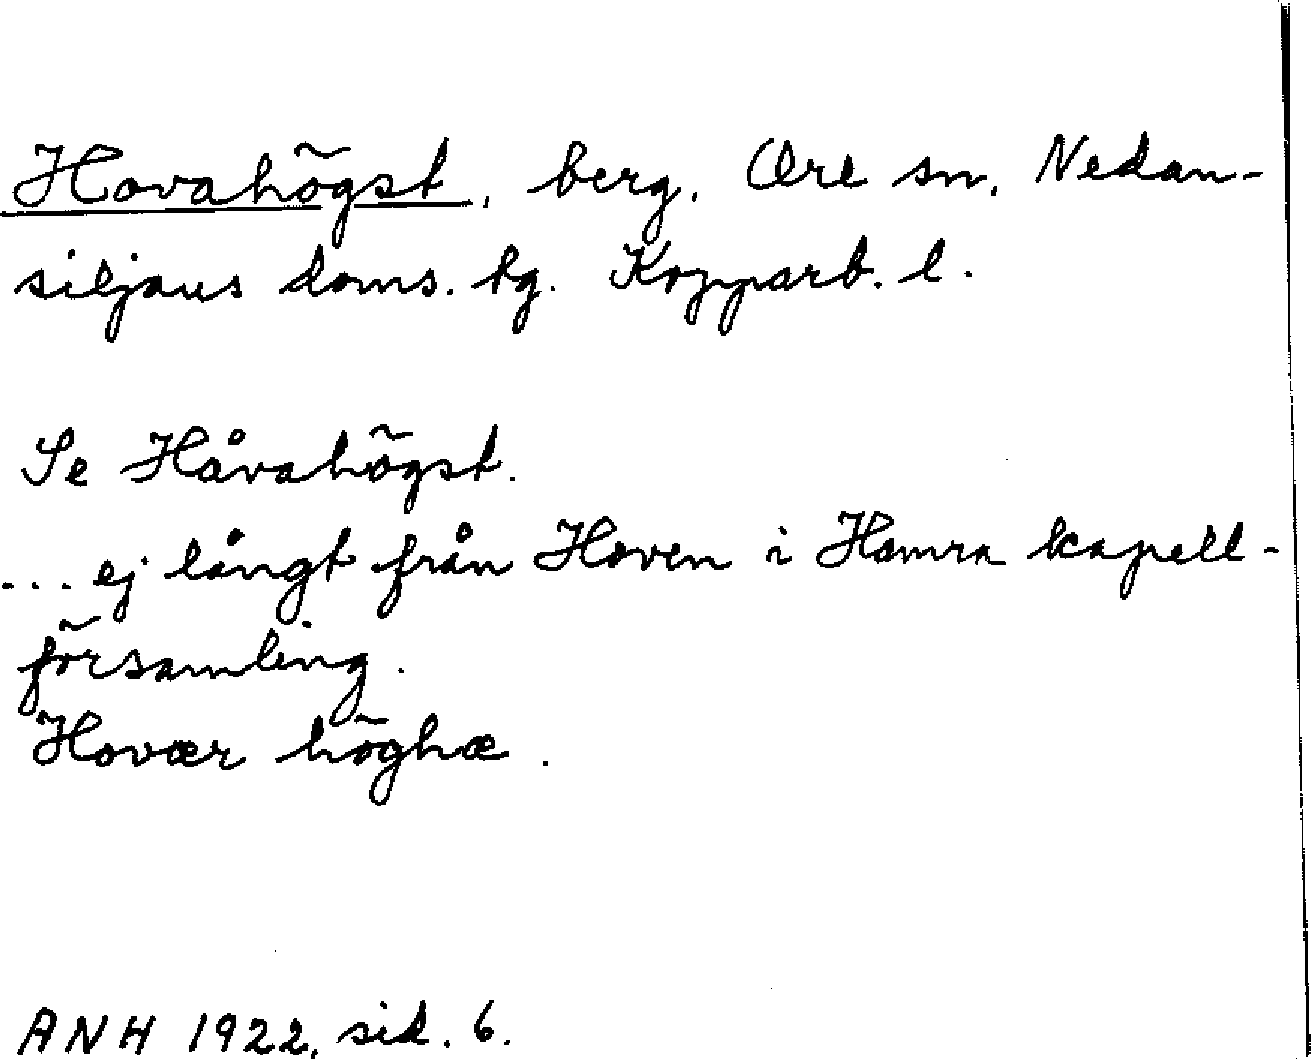 Hovahögst, berg, Ore sn, Nedan-
siljans doms. tg. Kopparb. l.
Se Håvahögst.
... ej långt från Hoven i Hamra kapell-
församling.
Hovær höghæ.
ANH 1922, sid. 6.